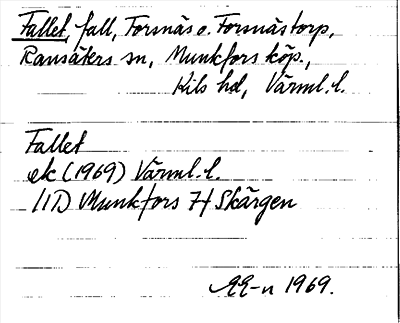 Fallet, fall, Forsnäs o. Forsnästorp,
Ransäters sn, Munkfors köp.,
Kils hd, Värml. l.
Fallet
ek (1969) Värml. l.
11D Munkfors 7f Skärgen
1969.